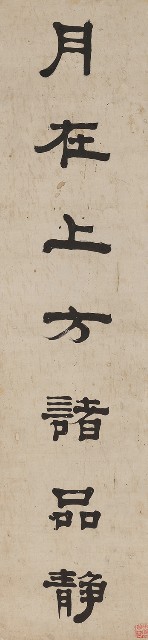 月在上方諸品静